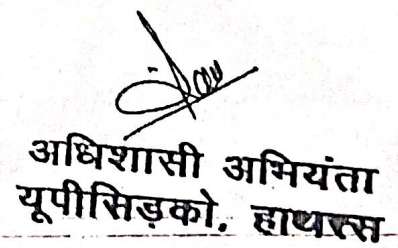 अधिशासी अभियंता
यूपीसिड़को. हाथरस